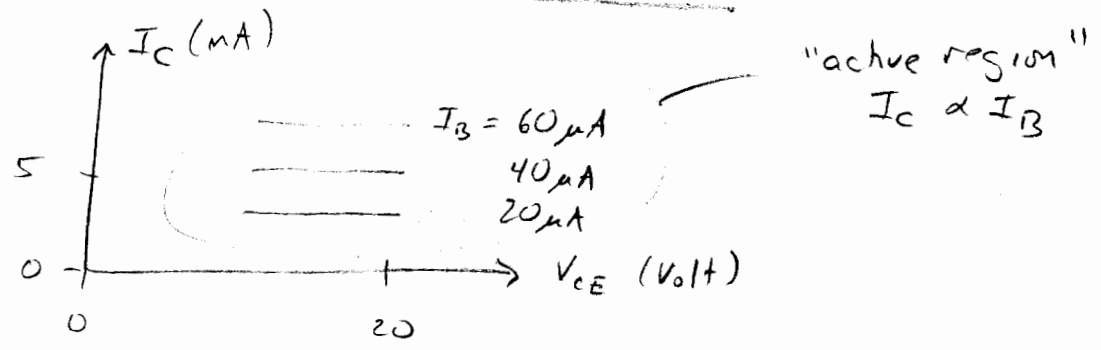 I_C (mA)
"active region"
I_C ∝ I_B
I_B = 60μA
5
40μA
20μA
0
V_CE (Volt)
0
20